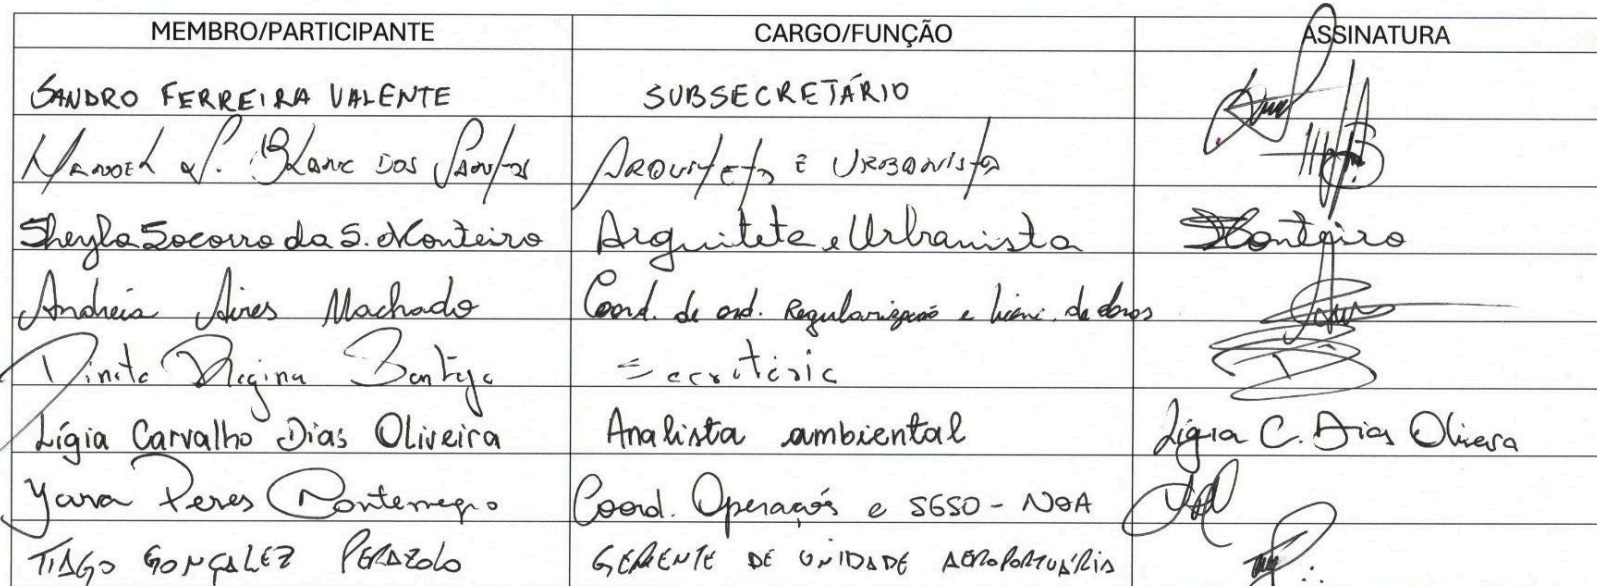 MEMBRO/PARTICIPANTE CARGO/FUNÇÃO ASSINATURA
SANDRO FERREIRA VALENTE SUBSECRETÁRIO
MANOEL S. BLANC DOS SANTOS ARQUITETO E URBANISTA
Sheyla Socorro da S. Monteiro Arquiteta e Urbanista Monteiro
Andreia Aires Machado Coord. de ord. Regularização e de obras
Regina
Lígia Carvalho Dias Oliveira Analista ambiental Lígia C. Dias Oliveira
Yara Peres Coord. Operações e SGSO - NOA
TIAGO GONÇALEZ PERAZOLO GERENTE DE UNIDADE AEROPORTUÁRIA